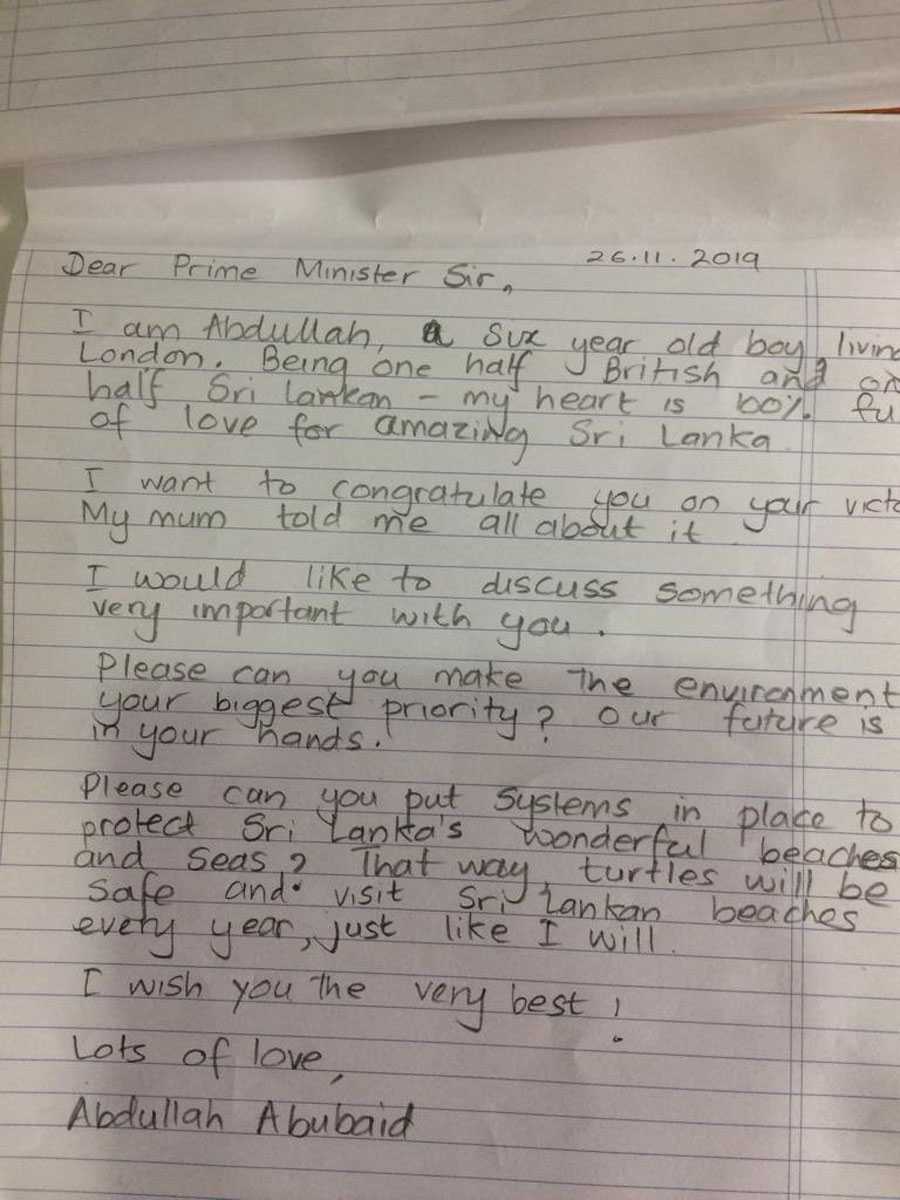 26.11.2019
Dear Prime Minister Sir,
I am Abdullah, a six year old boy living
London. Being one half British and
half Sri Lankan - my heart is 100%
of love for amazing Sri Lanka.
I want to congratulate you on your
My mum told me all about it.
I would like to discuss something
very important with you.
Please can you make the environment
your biggest priority? Our future is
in your hands.
Please can you put systems in place to
protect Sri Lanka's wonderful beaches
and seas? That way, turtles will be
safe and visit Sri Lankan beaches
every year, just like I will.
I wish you the very best!
Lots of love,
Abdullah Abubaid